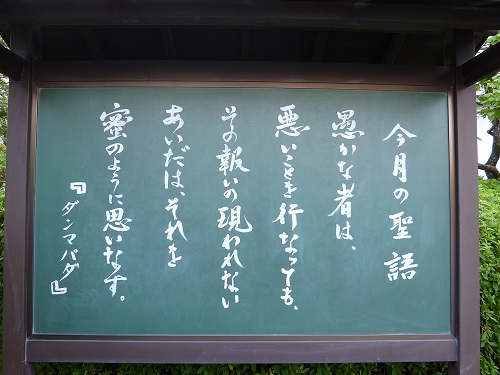 今月の聖語
愚かな者は、
悪いことを行なっても、
その報いの現われない
あいだは、それを
蜜のように思いなす。
『ダンマパダ』